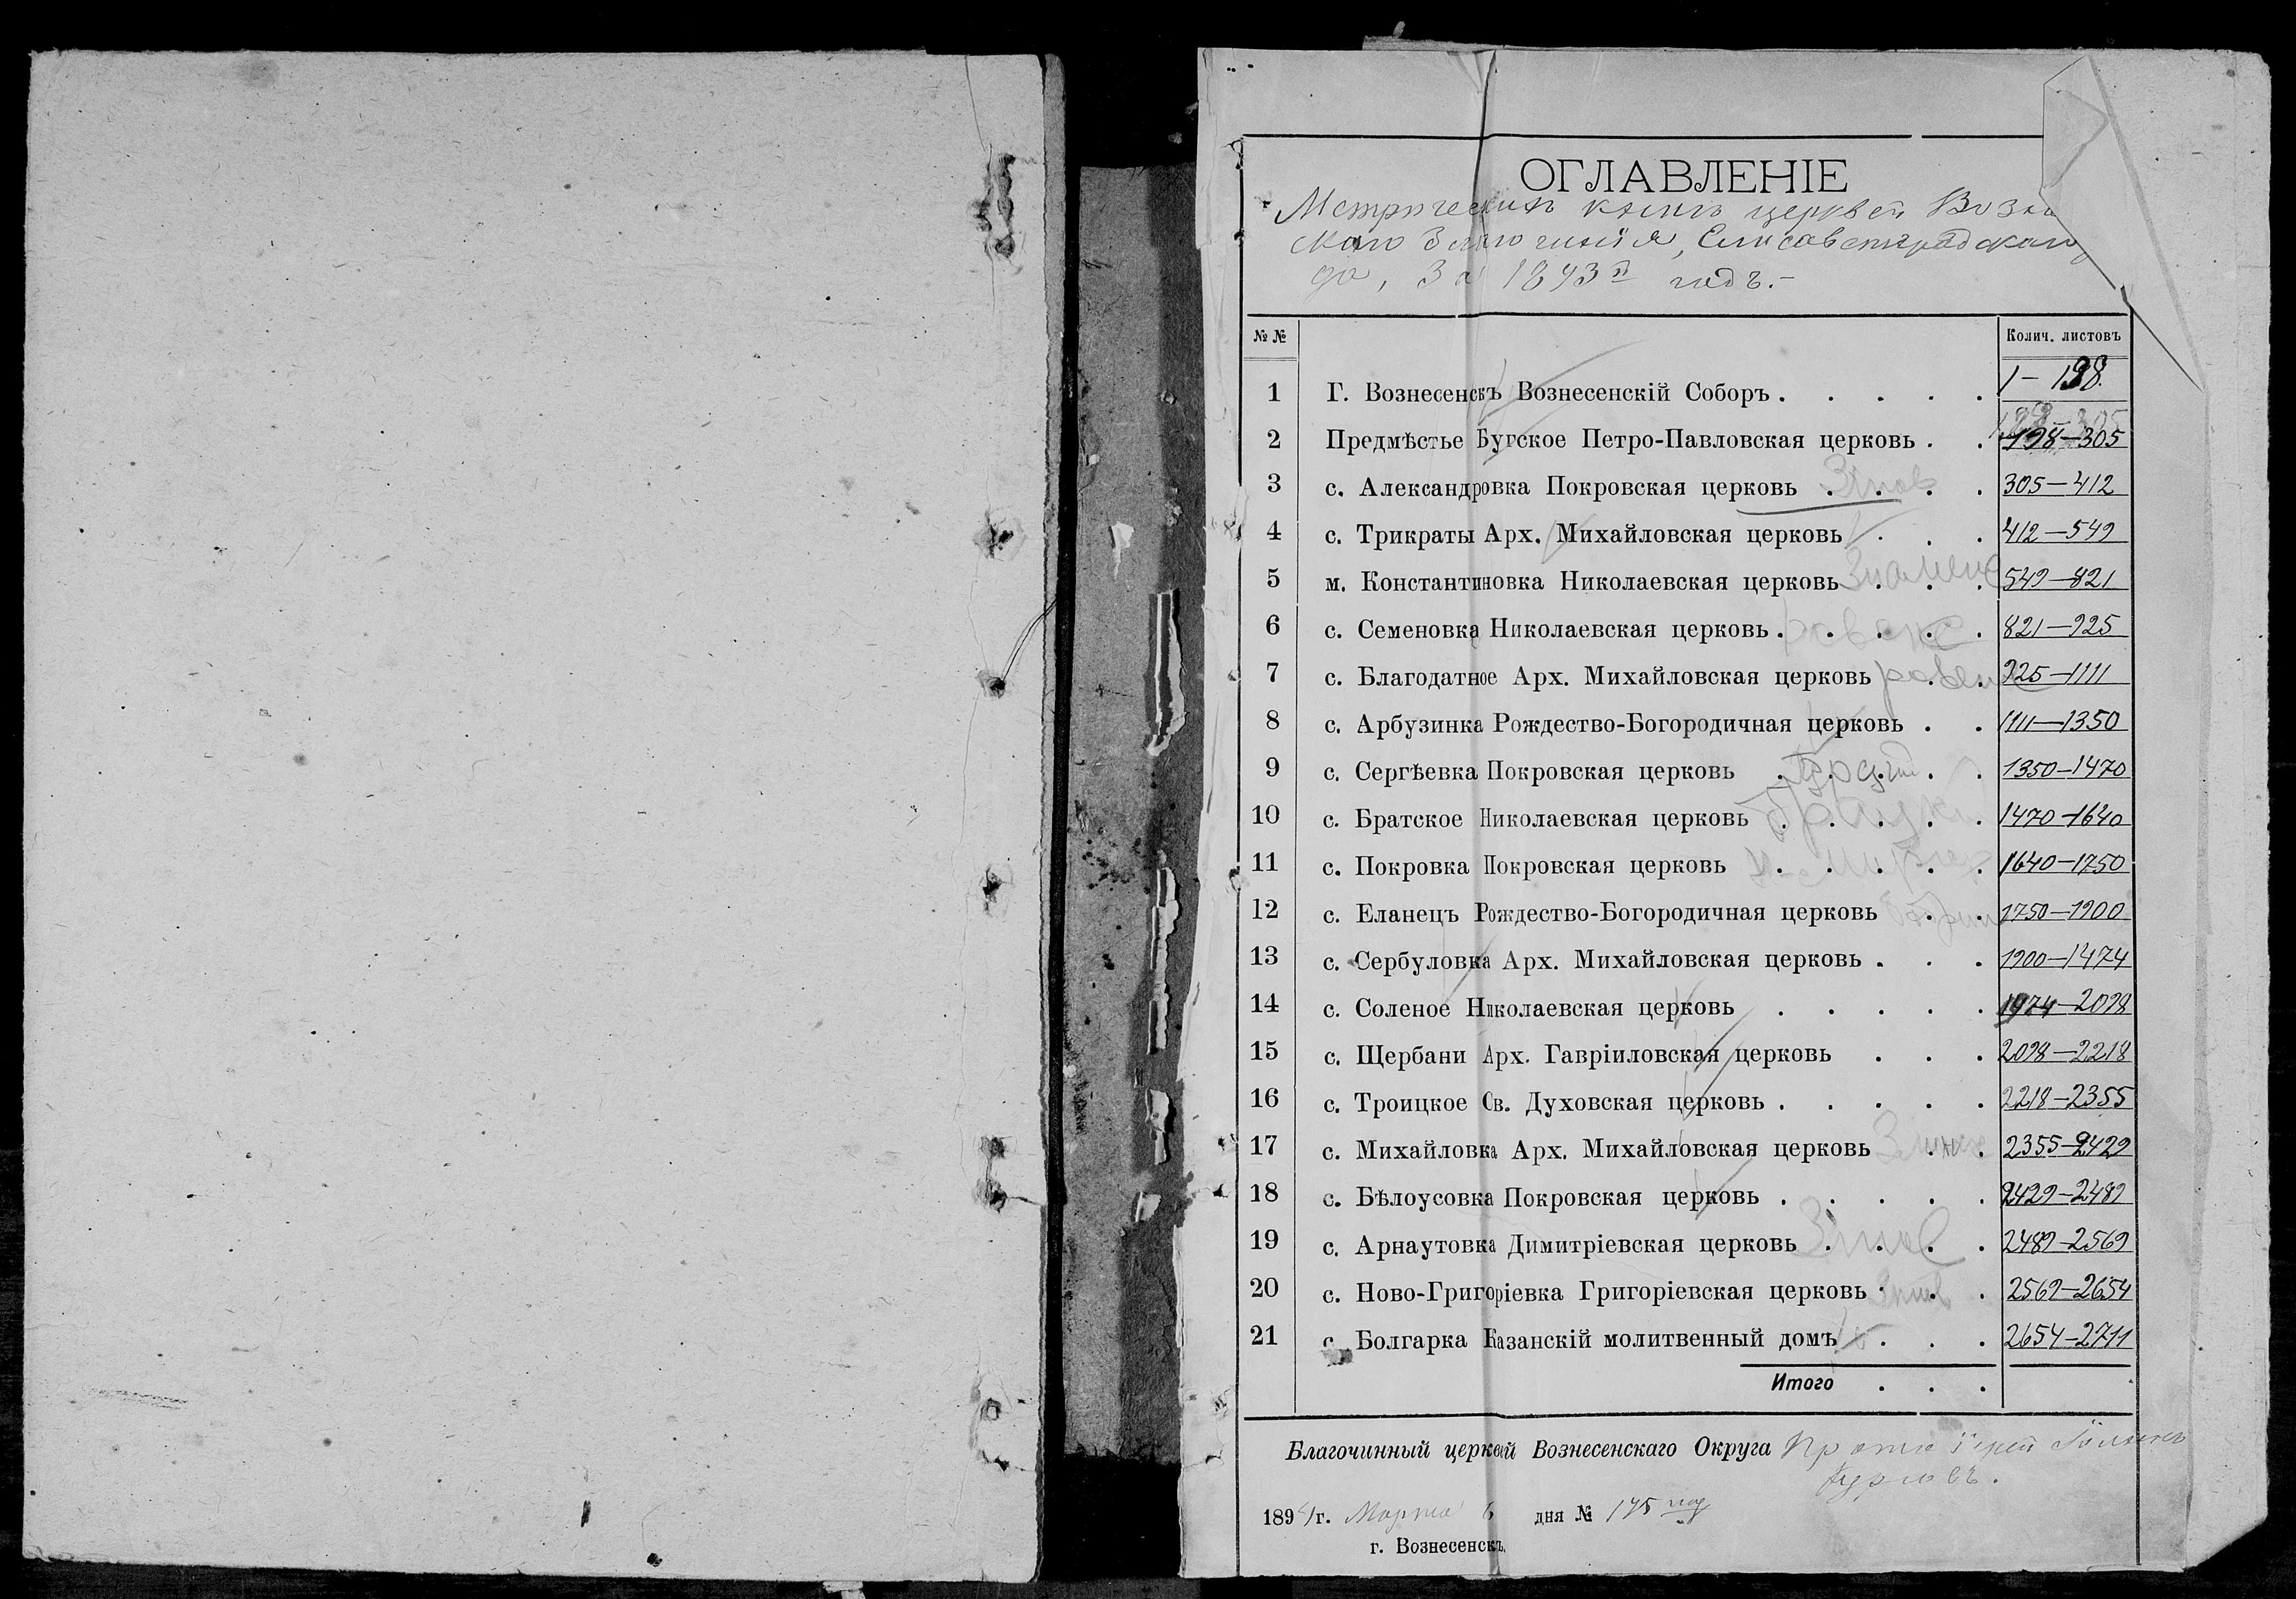 ОГЛАВЛЕНІЕ
Метрическихъ книгъ церквей Возне
скаго Благочинія, Елисаветградскаго
да, за 1893й годъ.-
№№ Колич. листовъ
1 Г. Вознесенскъ Вознесенскій Соборъ . . . . . 1-198
2 Предмѣстье Бугское Петро-Павловская церковь . . 198-305
3 с. Александровка Покровская церковь . . . . 305-412
4 с. Трикраты Арх. Михайловская церковь . . . 412-549
5 м. Константиновка Николаевская церковь Знамен . . . 549-821
6 с. Семеновка Николаевская церковь . . . . . 821-925
7 с. Благодатное Арх. Михайловская церковь . . 925-1111
8 с. Арбузинка Рождество-Богородичная церковь . . 1111-1350
9 с. Сергѣевка Покровская церковь . . . . . 1350-1470
10 с. Братское Николаевская церковь . . . . . 1470-1640
11 с. Покровка Покровская церковь . . . . . 1640-1750
12 с. Еланецъ Рождество-Богородичная церковь . . 1750-1900
13 с. Сербуловка Арх. Михайловская церковь . . . 1900-1474
14 с. Соленое Николаевская церковь . . . . . 1974-2098
15 с. Щербани Арх. Гавріиловская церковь . . . 2098-2218
16 с. Троицкое Св. Духовская церковь . . . . . 2218-2355
17 с. Михайловка Арх. Михайловская церковь . . 2355-2429
18 с. Бѣлоусовка Покровская церковь . . . . . 2429-2489
19 с. Арнаутовка Димитріевская церковь . . . . 2489-2569
20 с. Ново-Григоріевка Григоріевская церковь . . . 2569-2654
21 с. Болгарка Казанскій молитвенный домъ . . . 2654-2711
Итого . . .
Благочинный церквей Вознесенскаго Округа Протоіерей
1894 г. Марта 6 дня № 175
г. Вознесенскъ.